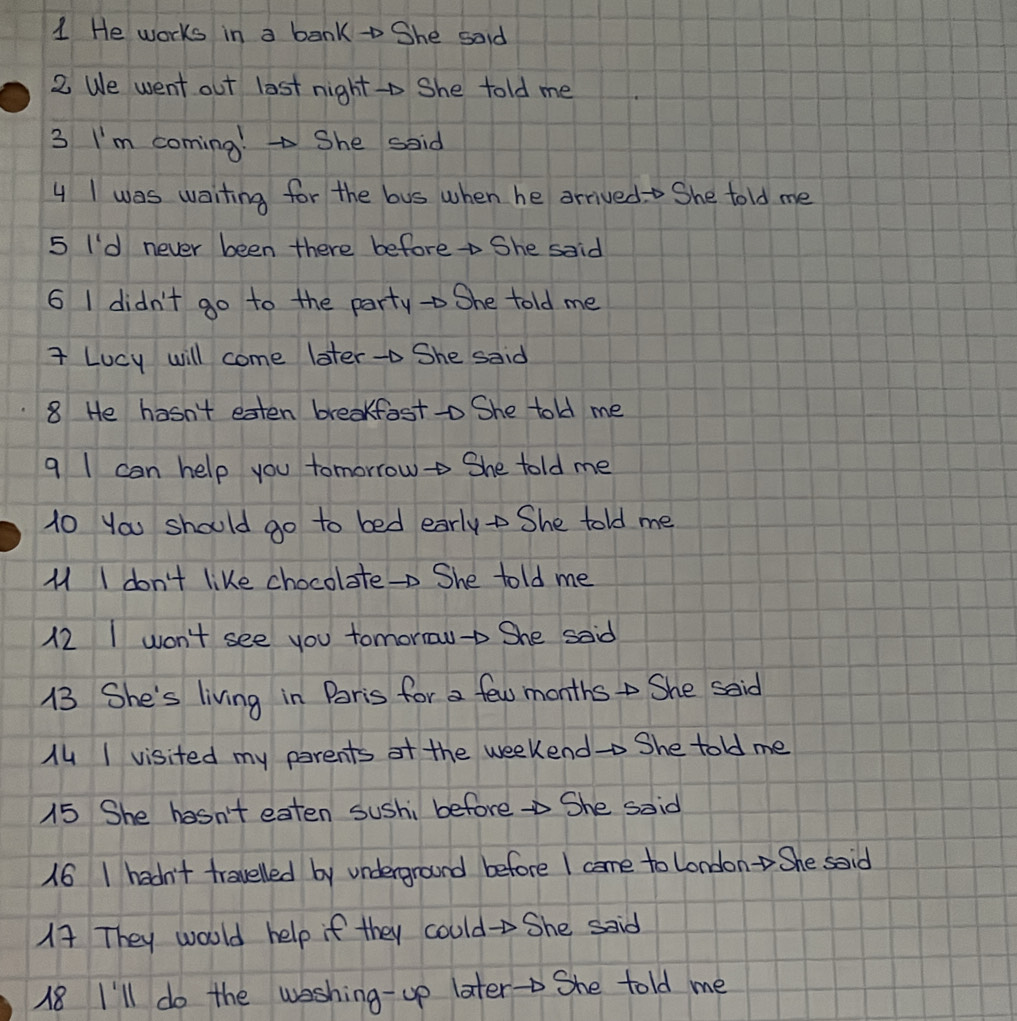 1 He works in a bank → She said
2 We went out last night → She told me
3 I'm coming! → She said
4 I was waiting for the bus when he arrived. → She told me
5 I'd never been there before → She said
6 I didn't go to the party → She told me
7 Lucy will come later → She said
8 He hasn't eaten breakfast → She told me
9 I can help you tomorrow → She told me
10 You should go to bed early → She told me
11 I don't like chocolate → She told me
12 I won't see you tomorrow → She said
13 She's living in Paris for a few months → She said
14 I visited my parents at the weekend → She told me
15 She hasn't eaten sushi before → She said
16 I hadn't travelled by underground before I came to London → She said
17 They would help if they could → She said
18 I'll do the washing-up later → She told me